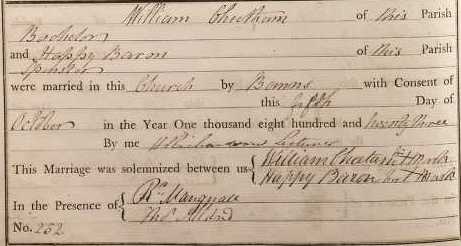 William Cheetham of this Parish
Bachelor
and Happy Baron of this Parish
Spinster
were married in this Church by Banns with Consent of
this fifth Day of
October in the Year One thousand eight hundred and twenty three
By me
This Marriage was solemnized between us William Cheetam his Mark
Happy Baron her Mark
In the Presence of Rd. Mangnall
Thos.
No. 252